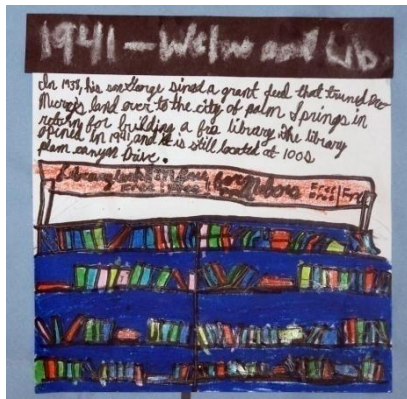 1941 - Welw and Lib
In 1938, his son George sined a grant deed that truned
Murrays land over to the city of palm Springs in
return for building a fre library. The library
opined in 1941 and it is still located at 100 S
plam canyon Drive.
Free Free